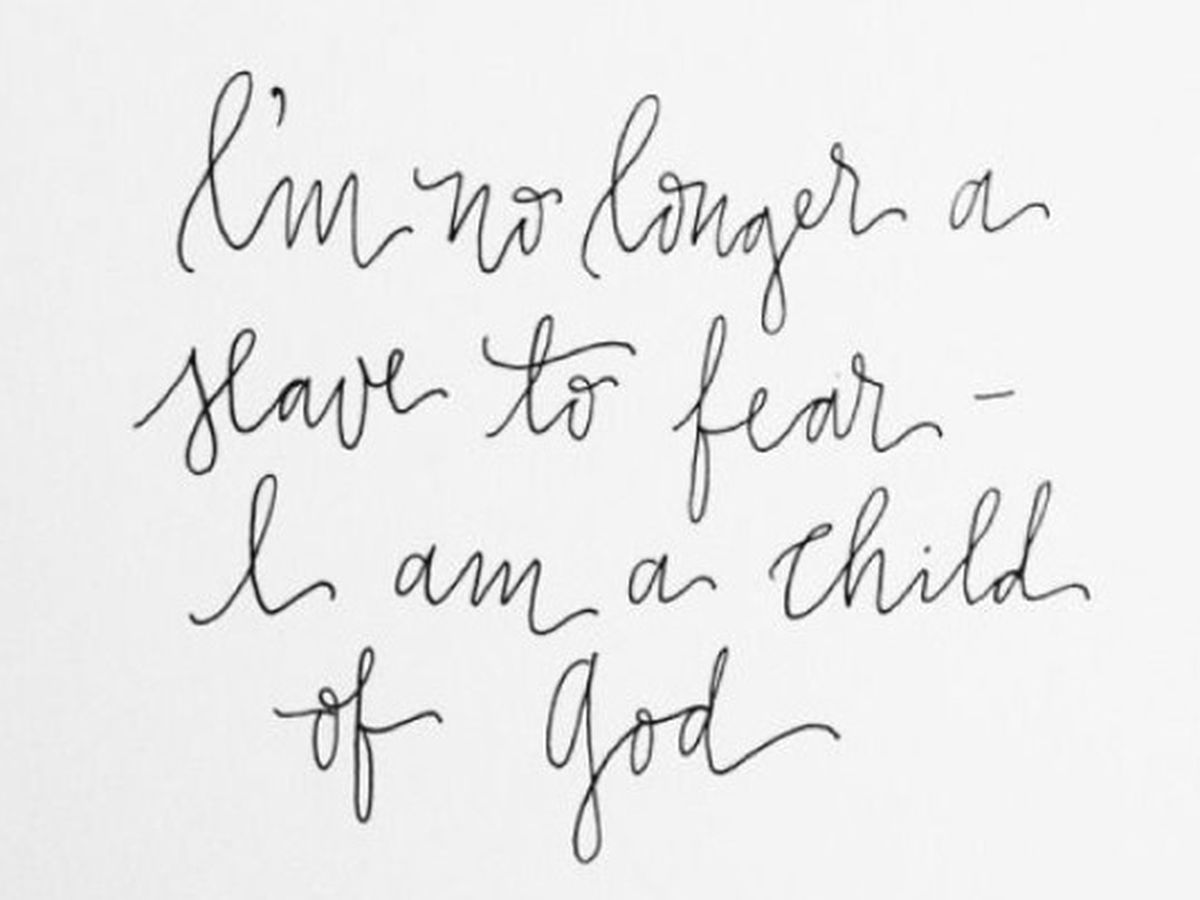 I'm no longer a
slave to fear -
I am a child
of God